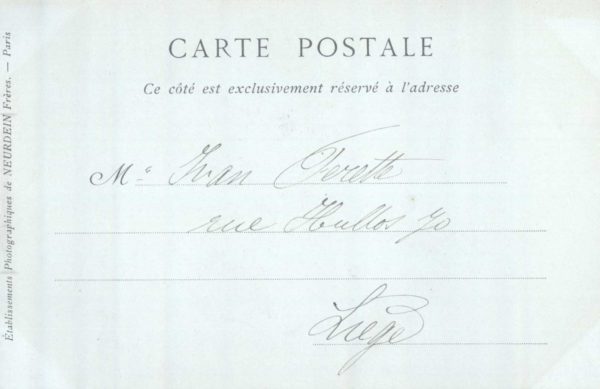 CARTE POSTALE
Ce côté est exclusivement réservé à l'adresse
M. Ivan Ferette
rue Hullos 70
Liège
Établissements Photographiques de NEURDEIN Frères. — Paris